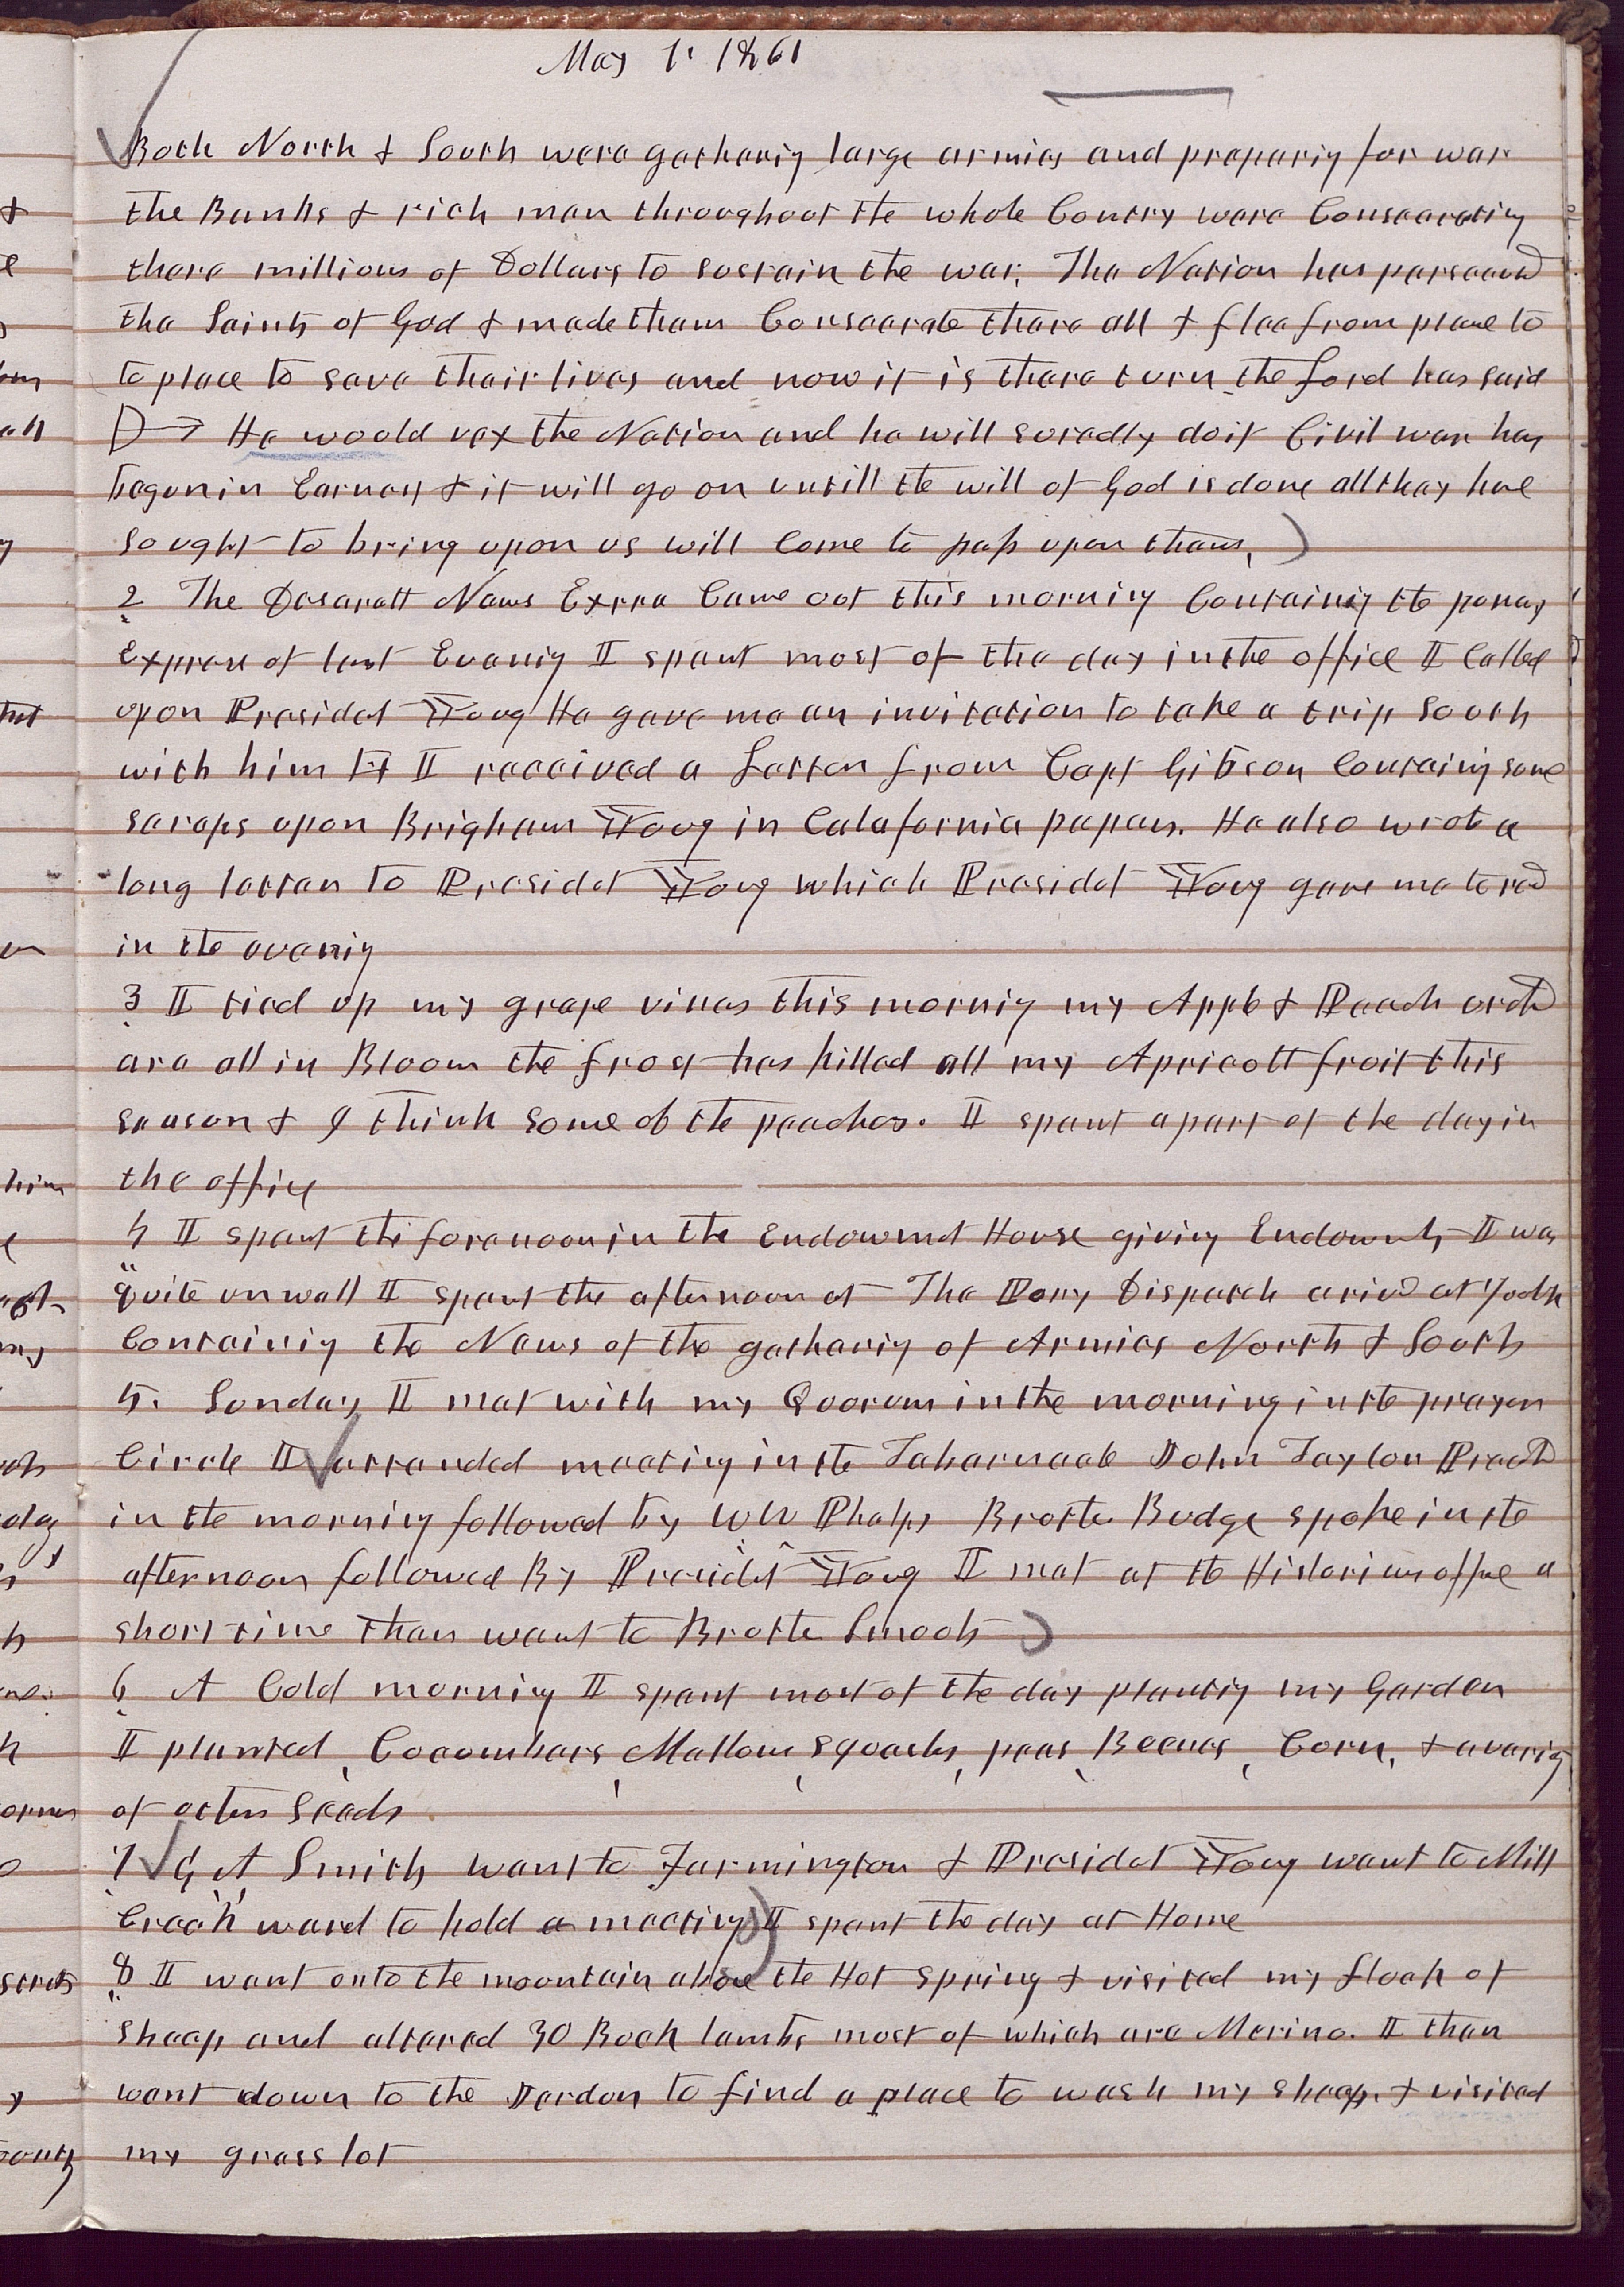 May 1. 1861
Both North & South were gathering large armies and preparing for war
the Banks & rich men throughout the whole Country were Consecrating
there millions of Dollars to sustain the war. The Nation has persecuted
the Saints of God & made them Consecrate there all & flee from place to
to place to save their lives and now it is there turn the Lord has said
He would vex the Nation and he will suredly do it Civil war has
begun in Earnest & it will go on untill the will of God is done all they have
sought to bring upon us will come to pass upon them.
2 The Deseratt News Extra Came out this morning Containing the poney
Express of last Evening I spent most of the day in the office I Called
upon Presidet Young He gave me an invitation to take a trip South
with him I received a Letter from Capt Gibson Containg some
scraps upon Brigham Young in Calafornia papers. He also wrote a
long letter to Presidet Young which Presidet Young gave me to read
in the evening
3 I tied up my grape vines this morning my Apple & Peach orchd
are all in Bloom the frost has killed all my Apricott fruit this
season & I think some of the peaches. I spent a part of the day in
the office
4 I spent the forenoon in the Endowmet House giving Endowmts I was
quite unwell I spent the afternoon at The Pony Dispatch arived at
Containing the News of the gathering of Armies North & South
5. Sunday I met with my Quorum in the morning in the prayer
Circle I attended meeting in the Tabernacle John Taylor Preachd
in the morning followed by WW Phelps Brother Budge spoke in the
afternoon followed By Presidet Young I met at the Historians office a
short time then went to Brother Smoots
6 A Cold morning I spent most of the day planting my Garden
I planted, Cocumbers, Mellons, squashes, peas, Beenes, Corn, & a varity
of other Seeds.
7 G A Smith went to Farmington & Presidet Young went to Mill
Creek ward to hold a meeting I spent the day at Home
8 I went onto the mountain above the Hot Spring & visited my flock of
sheep and altered 30 Buck lambs most of which are Merino. I then
went down to the Jordon to find a place to wash my sheep. & visited
my grass lot